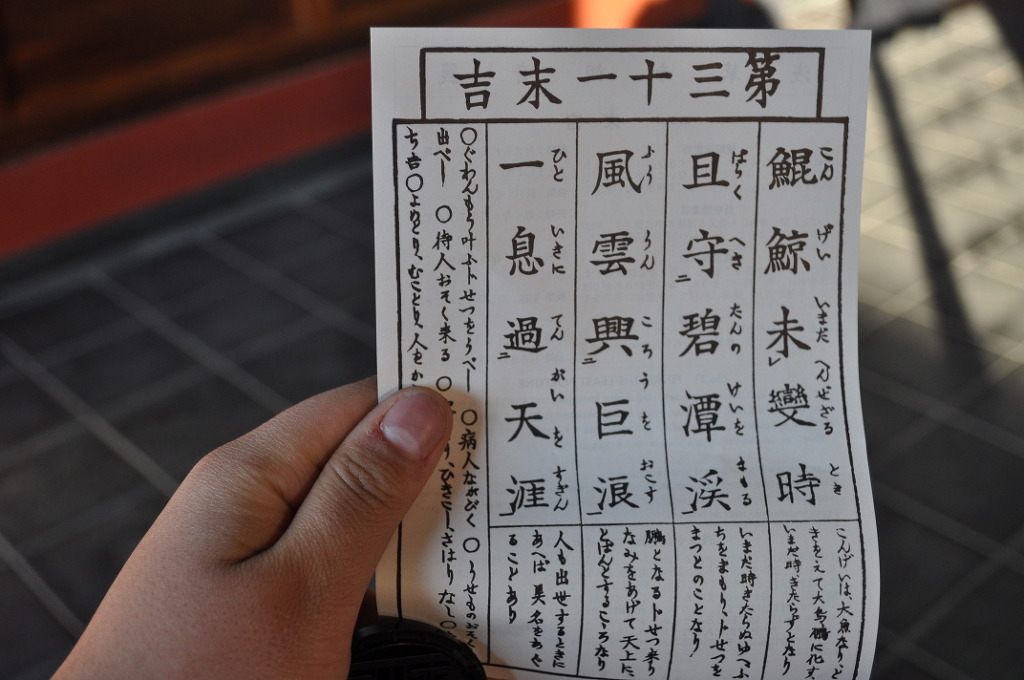 第三十一末吉
鯤鯨未變時
こん げい いまだ へんぜざる とき
且守碧潭渓
ばらく へき たんの けいを まもる
風雲興巨浪
ふう うん ころうを おこす
一息過天涯
ひと いきに てん がいを すぎん
こんげいは、大魚なり、と
きをえて大鳥鵬に化す、
いまだ時きたらずとなり
いまだ時きたらぬゆへふ
ちをまもり、トせつを
まつとのことなり
鵬となるトせつ来り
なみをあげて天上に、
とばんとするころなり
人も出世するときに
あへば 美名をあぐ
ることあり
○ぐわんもう叶ふトせつをうべー ○病人ながびく ○うせものおそく
出べー ○待人おそく来る ○ り、ひきこー、さはりなし○
ち吉○よめとり、むことり、人をか